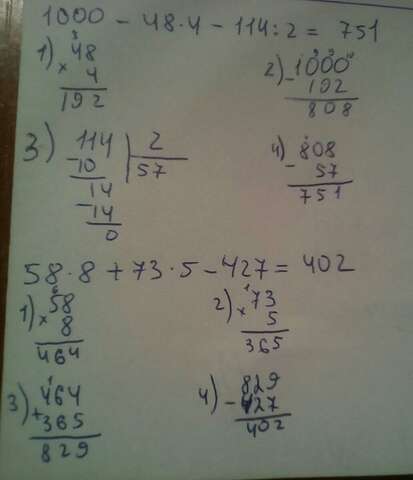 1000 - 48·4 - 114:2 = 751
1) 48 2) 1000
× 4 - 192
192 808
3) 114 | 2 4) 808
- 10 57 - 57
14 751
- 14
0
58·8 + 73·5 - 427 = 402
1) 58 2) 73
× 8 × 5
464 365
3) 464 4) 829
+ 365 - 427
829 402